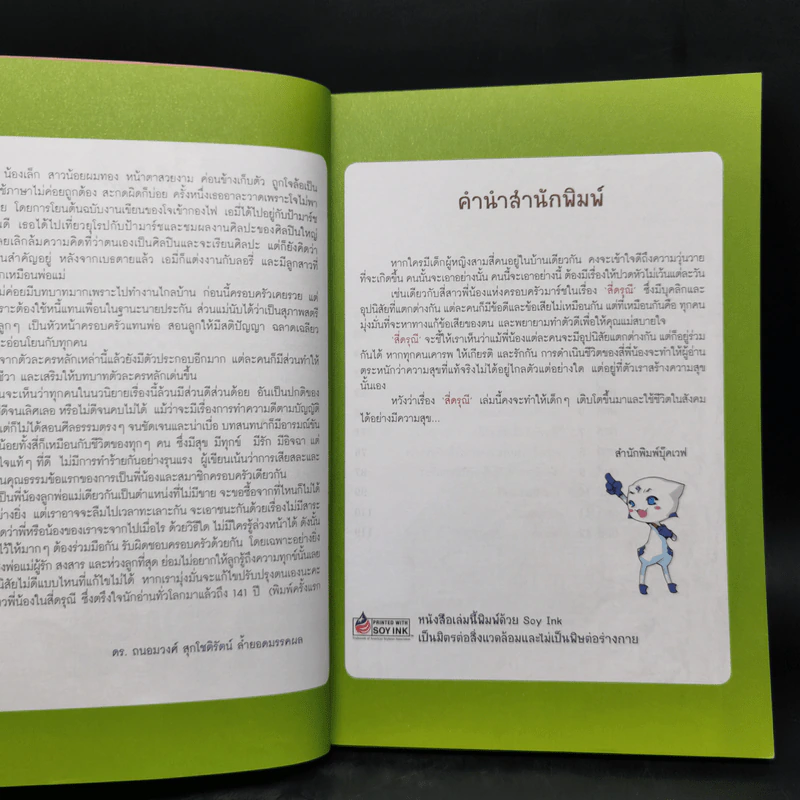 น้องเล็ก สาวน้อยผมทอง หน้าตาสวยงาม ค่อนข้างเก็บตัว ถูกโจล้อเป็น
ใช้ภาษาไม่ค่อยถูกต้อง สะกดผิดก็บ่อย ครั้งหนึ่งเธออาละวาดเพราะโจไม่พา
โดยการโยนต้นฉบับงานเขียนของโจเข้ากองไฟ เอมี่ได้ไปอยู่กับป้ามาร์ช
เธอได้ไปเที่ยวยุโรปกับป้ามาร์ชและชมผลงานศิลปะของศิลปินใหญ่
เลยเลิกล้มความคิดที่ว่าตนเองเป็นศิลปินและจะเรียนศิลปะ แต่ก็ยังคิดว่า
นสำคัญอยู่ หลังจากเบธตายแล้ว เอมี่ก็แต่งงานกับลอรี่ และมีลูกสาวที่
กเหมือนพ่อแม่
ไม่ค่อยมีบทบาทมากเพราะไปทำงานไกลบ้าน ก่อนนี้ครอบครัวเคยรวย แต่
ราะต้องใช้หนี้แทนเพื่อนในฐานะนายประกัน ส่วนแม่นับได้ว่าเป็นสุภาพสตรี
ลูกๆ เป็นหัวหน้าครอบครัวแทนพ่อ สอนลูกให้มีสติปัญญา ฉลาดเฉลียว
ะอ่อนโยนกับทุกคน
จากตัวละครหลักเหล่านี้แล้วยังมีตัวประกอบอีกมาก แต่ละคนก็มีส่วนทำให้
ชีวา และเสริมให้บทบาทตัวละครหลักเด่นขึ้น
นจะเห็นว่าทุกคนในนวนิยายเรื่องนี้ล้วนมีส่วนดีส่วนด้อย อันเป็นปกติของ
ดีจนเลิศเลอ หรือไม่ดีจนคบไม่ได้ แม้ว่าจะมีเรื่องการทำความดีตามบัญญัติ
แต่ก็ไม่ได้สอนศีลธรรมตรงๆ จนขัดเจนและน่าเบื่อ บทสนทนาก็มีอารมณ์ขัน
น้อยทั้งสี่ก็เหมือนกับชีวิตของทุกๆ คน ซึ่งมีสุข มีทุกข์ มีรัก มีอิจฉา แต่
ใจแท้ๆ ที่ดี ไม่มีการทำร้ายกันอย่างรุนแรง ผู้เขียนเน้นว่าการเสียสละและ
นคุณธรรมข้อแรกของการเป็นพี่น้องและสมาชิกครอบครัวเดียวกัน
เป็นพี่น้องลูกพ่อแม่เดียวกันเป็นตำแหน่งที่ไม่มีขาย จะขอซื้อจากที่ไหนก็ไม่ได้
อย่างยิ่ง แต่เราอาจจะลืมไปเวลาทะเลาะกัน จะเอาชนะกันด้วยเรื่องไม่มีสาระ
ดว่าพี่หรือน้องของเราจะจากไปเมื่อไร ด้วยวิธีใด ไม่มีใครรู้ล่วงหน้าได้ ดังนั้น
ไว้ให้มากๆ ต้องร่วมมือกัน รับผิดชอบครอบครัวด้วยกัน โดยเฉพาะอย่างยิ่ง
งพ่อแม่ผู้รัก สงสาร และห่วงลูกที่สุด ย่อมไม่อยากให้ลูกรู้ถึงความทุกข์นั้นเลย
นิสัยไม่ดีแบบไหนที่แก้ไขไม่ได้ หากเรามุ่งมั่นจะแก้ไขปรับปรุงตนเองนะคะ
าวพี่น้องในสี่ดรุณี ซึ่งตรึงใจนักอ่านทั่วโลกมาแล้วถึง 141 ปี (พิมพ์ครั้งแรก
ดร. ถนอมวงศ์ สุกโชติรัตน์ ล้ำยอดมรรคผล
คำนำสำนักพิมพ์
หากใครมีเด็กผู้หญิงสามสี่คนอยู่ในบ้านเดียวกัน คงจะเข้าใจดีถึงความวุ่นวาย
ที่จะเกิดขึ้น คนนั้นจะเอาอย่างนั้น คนนี้จะเอาอย่างนี้ ต้องมีเรื่องให้ปวดหัวไม่เว้นแต่ละวัน
เช่นเดียวกับสี่สาวพี่น้องแห่งครอบครัวมาร์ชในเรื่อง ‘สี่ดรุณี’ ซึ่งมีบุคลิกและ
อุปนิสัยที่แตกต่างกัน แต่ละคนก็มีข้อดีและข้อเสียไม่เหมือนกัน แต่ที่เหมือนกันคือ ทุกคน
มุ่งมั่นที่จะหาทางแก้ข้อเสียของตน และพยายามทำตัวดีเพื่อให้คุณแม่สบายใจ
‘สี่ดรุณี’ จะชี้ให้เราเห็นว่าแม้พี่น้องแต่ละคนจะมีอุปนิสัยแตกต่างกัน แต่ก็อยู่ร่วม
กันได้ หากทุกคนเคารพ ให้เกียรติ และรักกัน การดำเนินชีวิตของสี่พี่น้องจะทำให้ผู้อ่าน
ตระหนักว่าความสุขที่แท้จริงไม่ได้อยู่ไกลตัวแต่อย่างใด แต่อยู่ที่ตัวเราสร้างความสุข
นั้นเอง
หวังว่าเรื่อง ‘สี่ดรุณี’ เล่มนี้คงจะทำให้เด็กๆ เติบโตขึ้นมาและใช้ชีวิตในสังคม
ได้อย่างมีความสุข...
สำนักพิมพ์บุ๊คเวฟ
PRINTED WITH
SOY INK
หนังสือเล่มนี้พิมพ์ด้วย Soy Ink
เป็นมิตรต่อสิ่งแวดล้อมและไม่เป็นพิษต่อร่างกาย